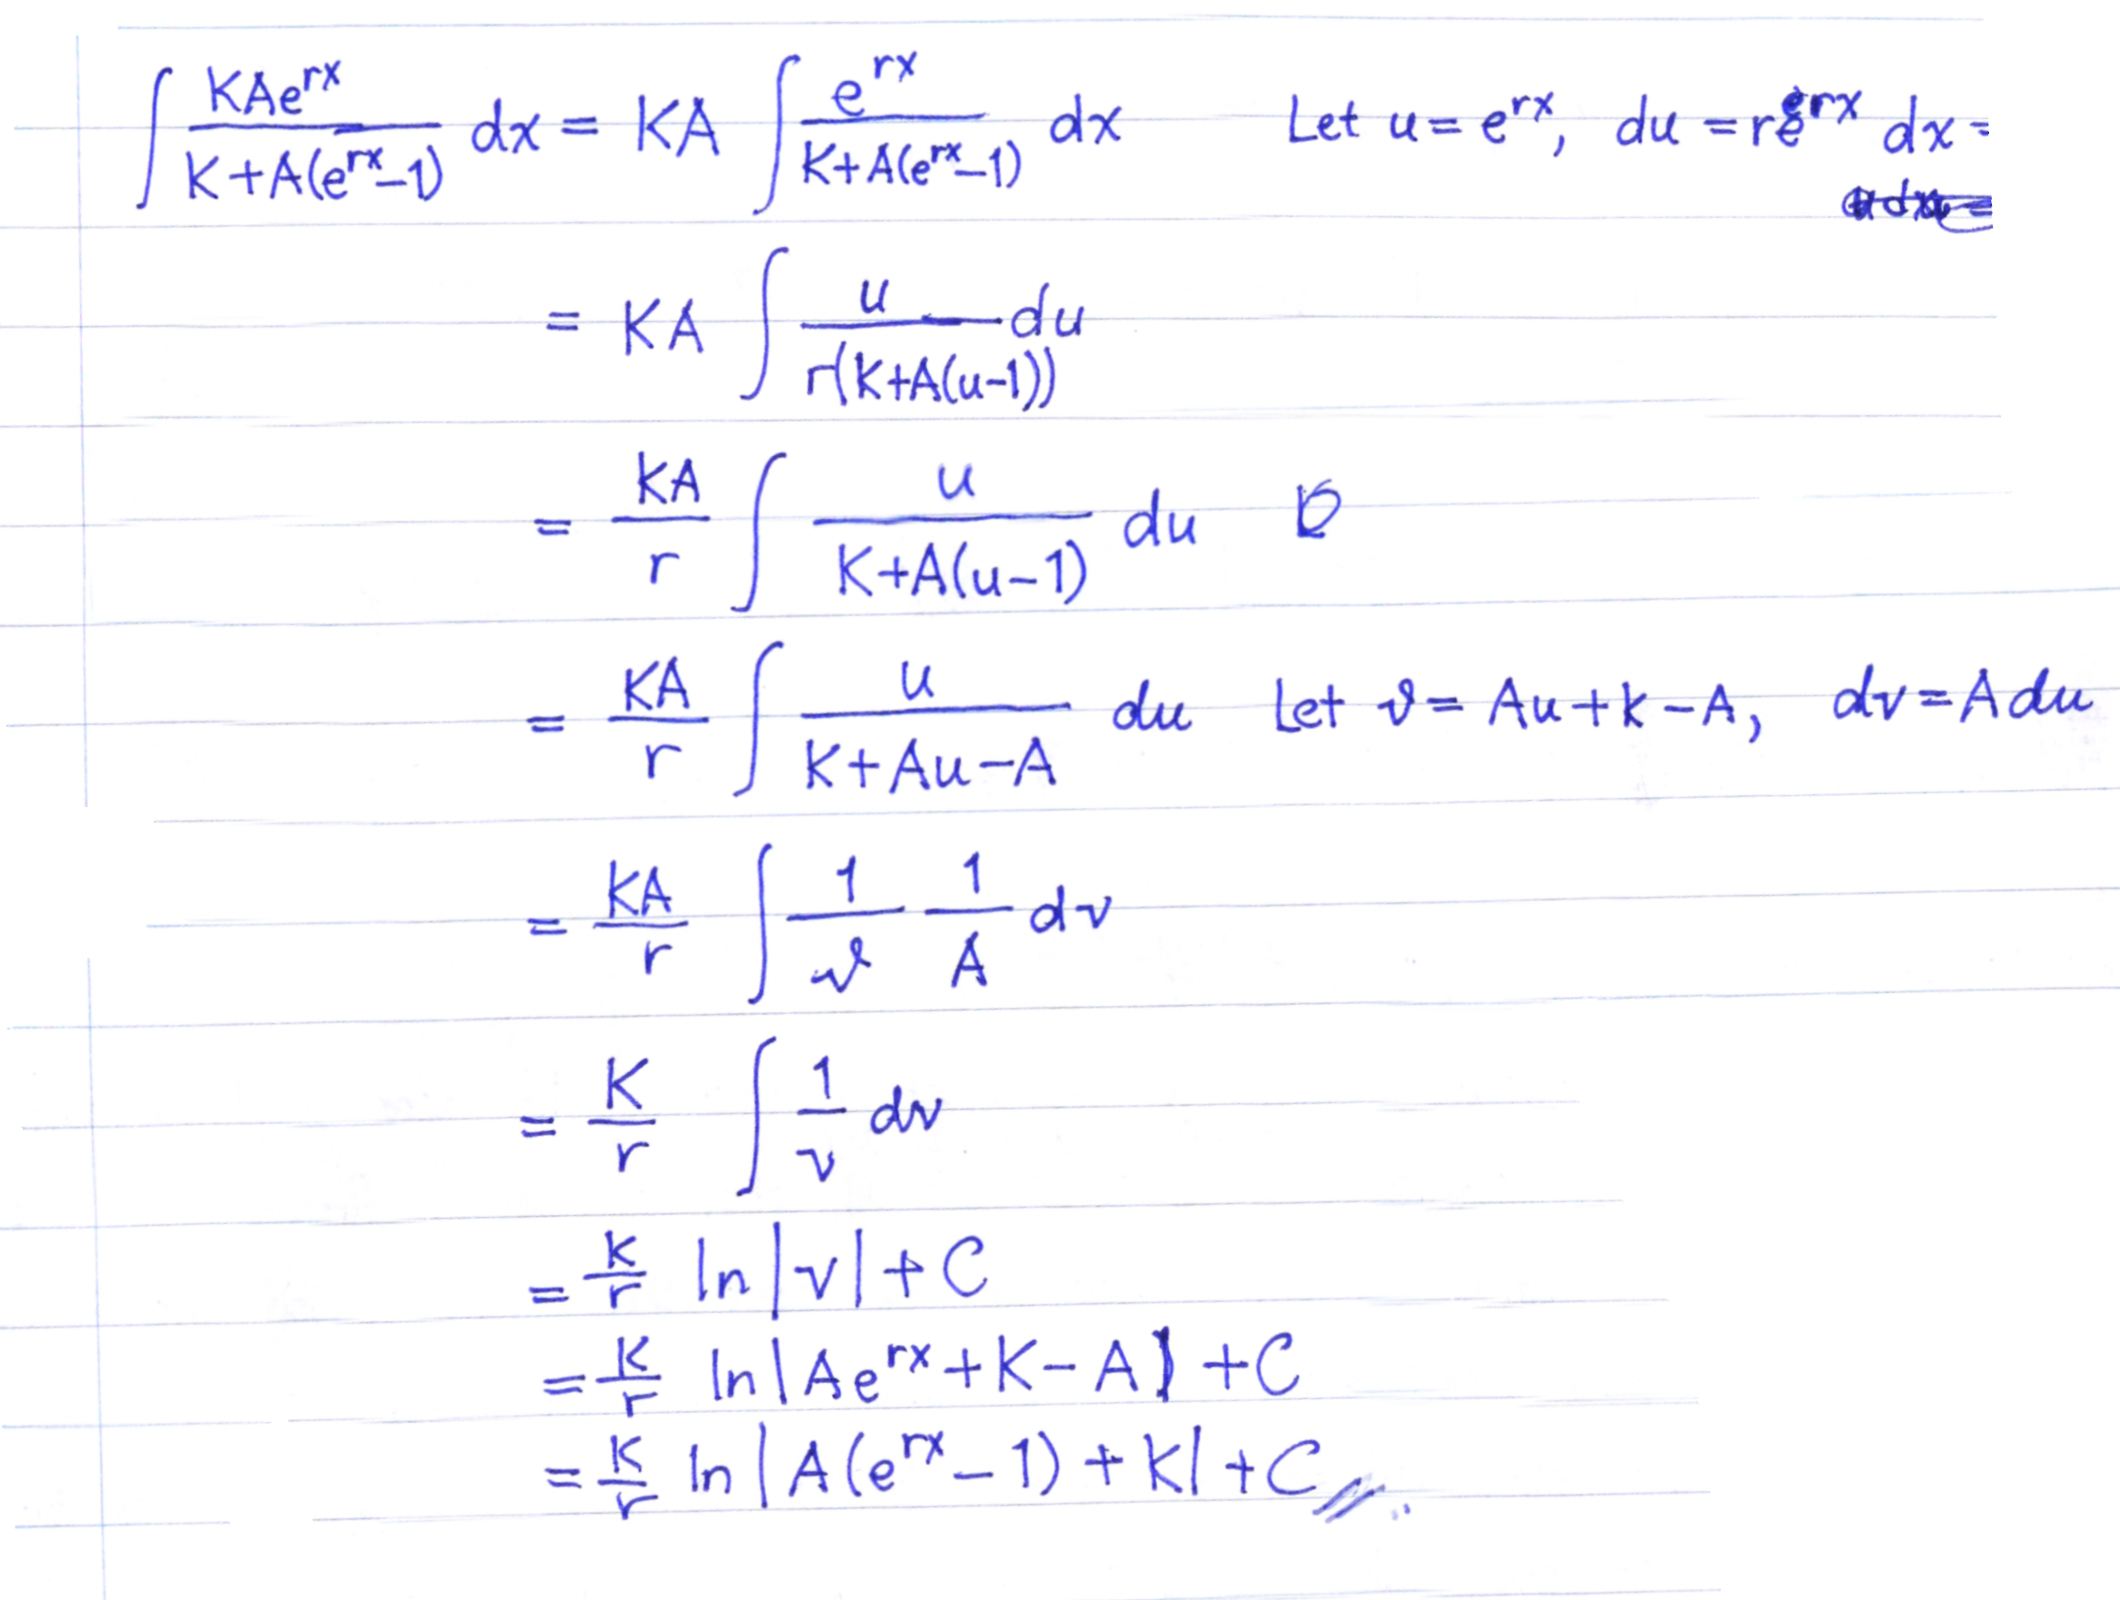 ∫ KAe^{rx} / (K+A(e^{rx}−1)) dx = KA ∫ e^{rx} / (K+A(e^{rx}−1)) dx Let u = e^{rx}, du = re^{rx} dx =
= KA ∫ u / (r(K+A(u−1))) du
= KA/r ∫ u / (K+A(u−1)) du
= KA/r ∫ u / (K+Au−A) du Let v = Au+k−A, dv = A du
= KA/r ∫ 1/v 1/A dv
= K/r ∫ 1/v dv
= K/r ln|v| + C
= K/r ln|Ae^{rx}+K−A| + C
= K/r ln|A(e^{rx}−1)+K| + C